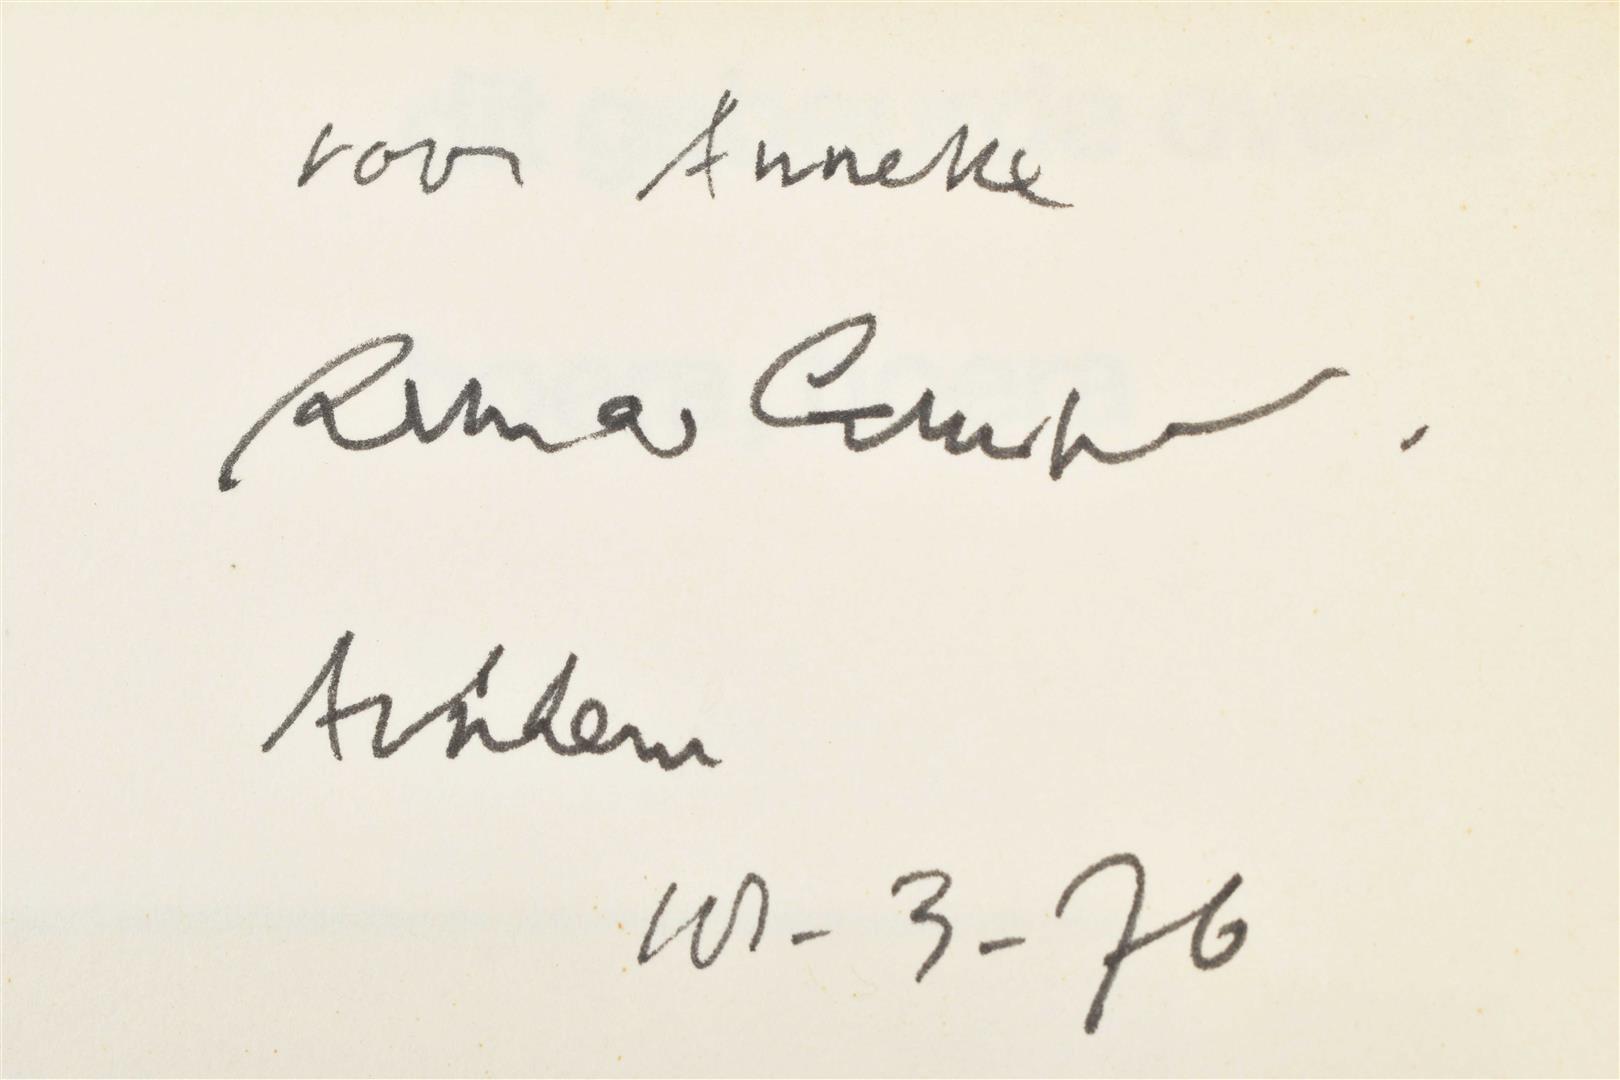 voor Anneke
Remco Campert.
Arnhem
10-3-76